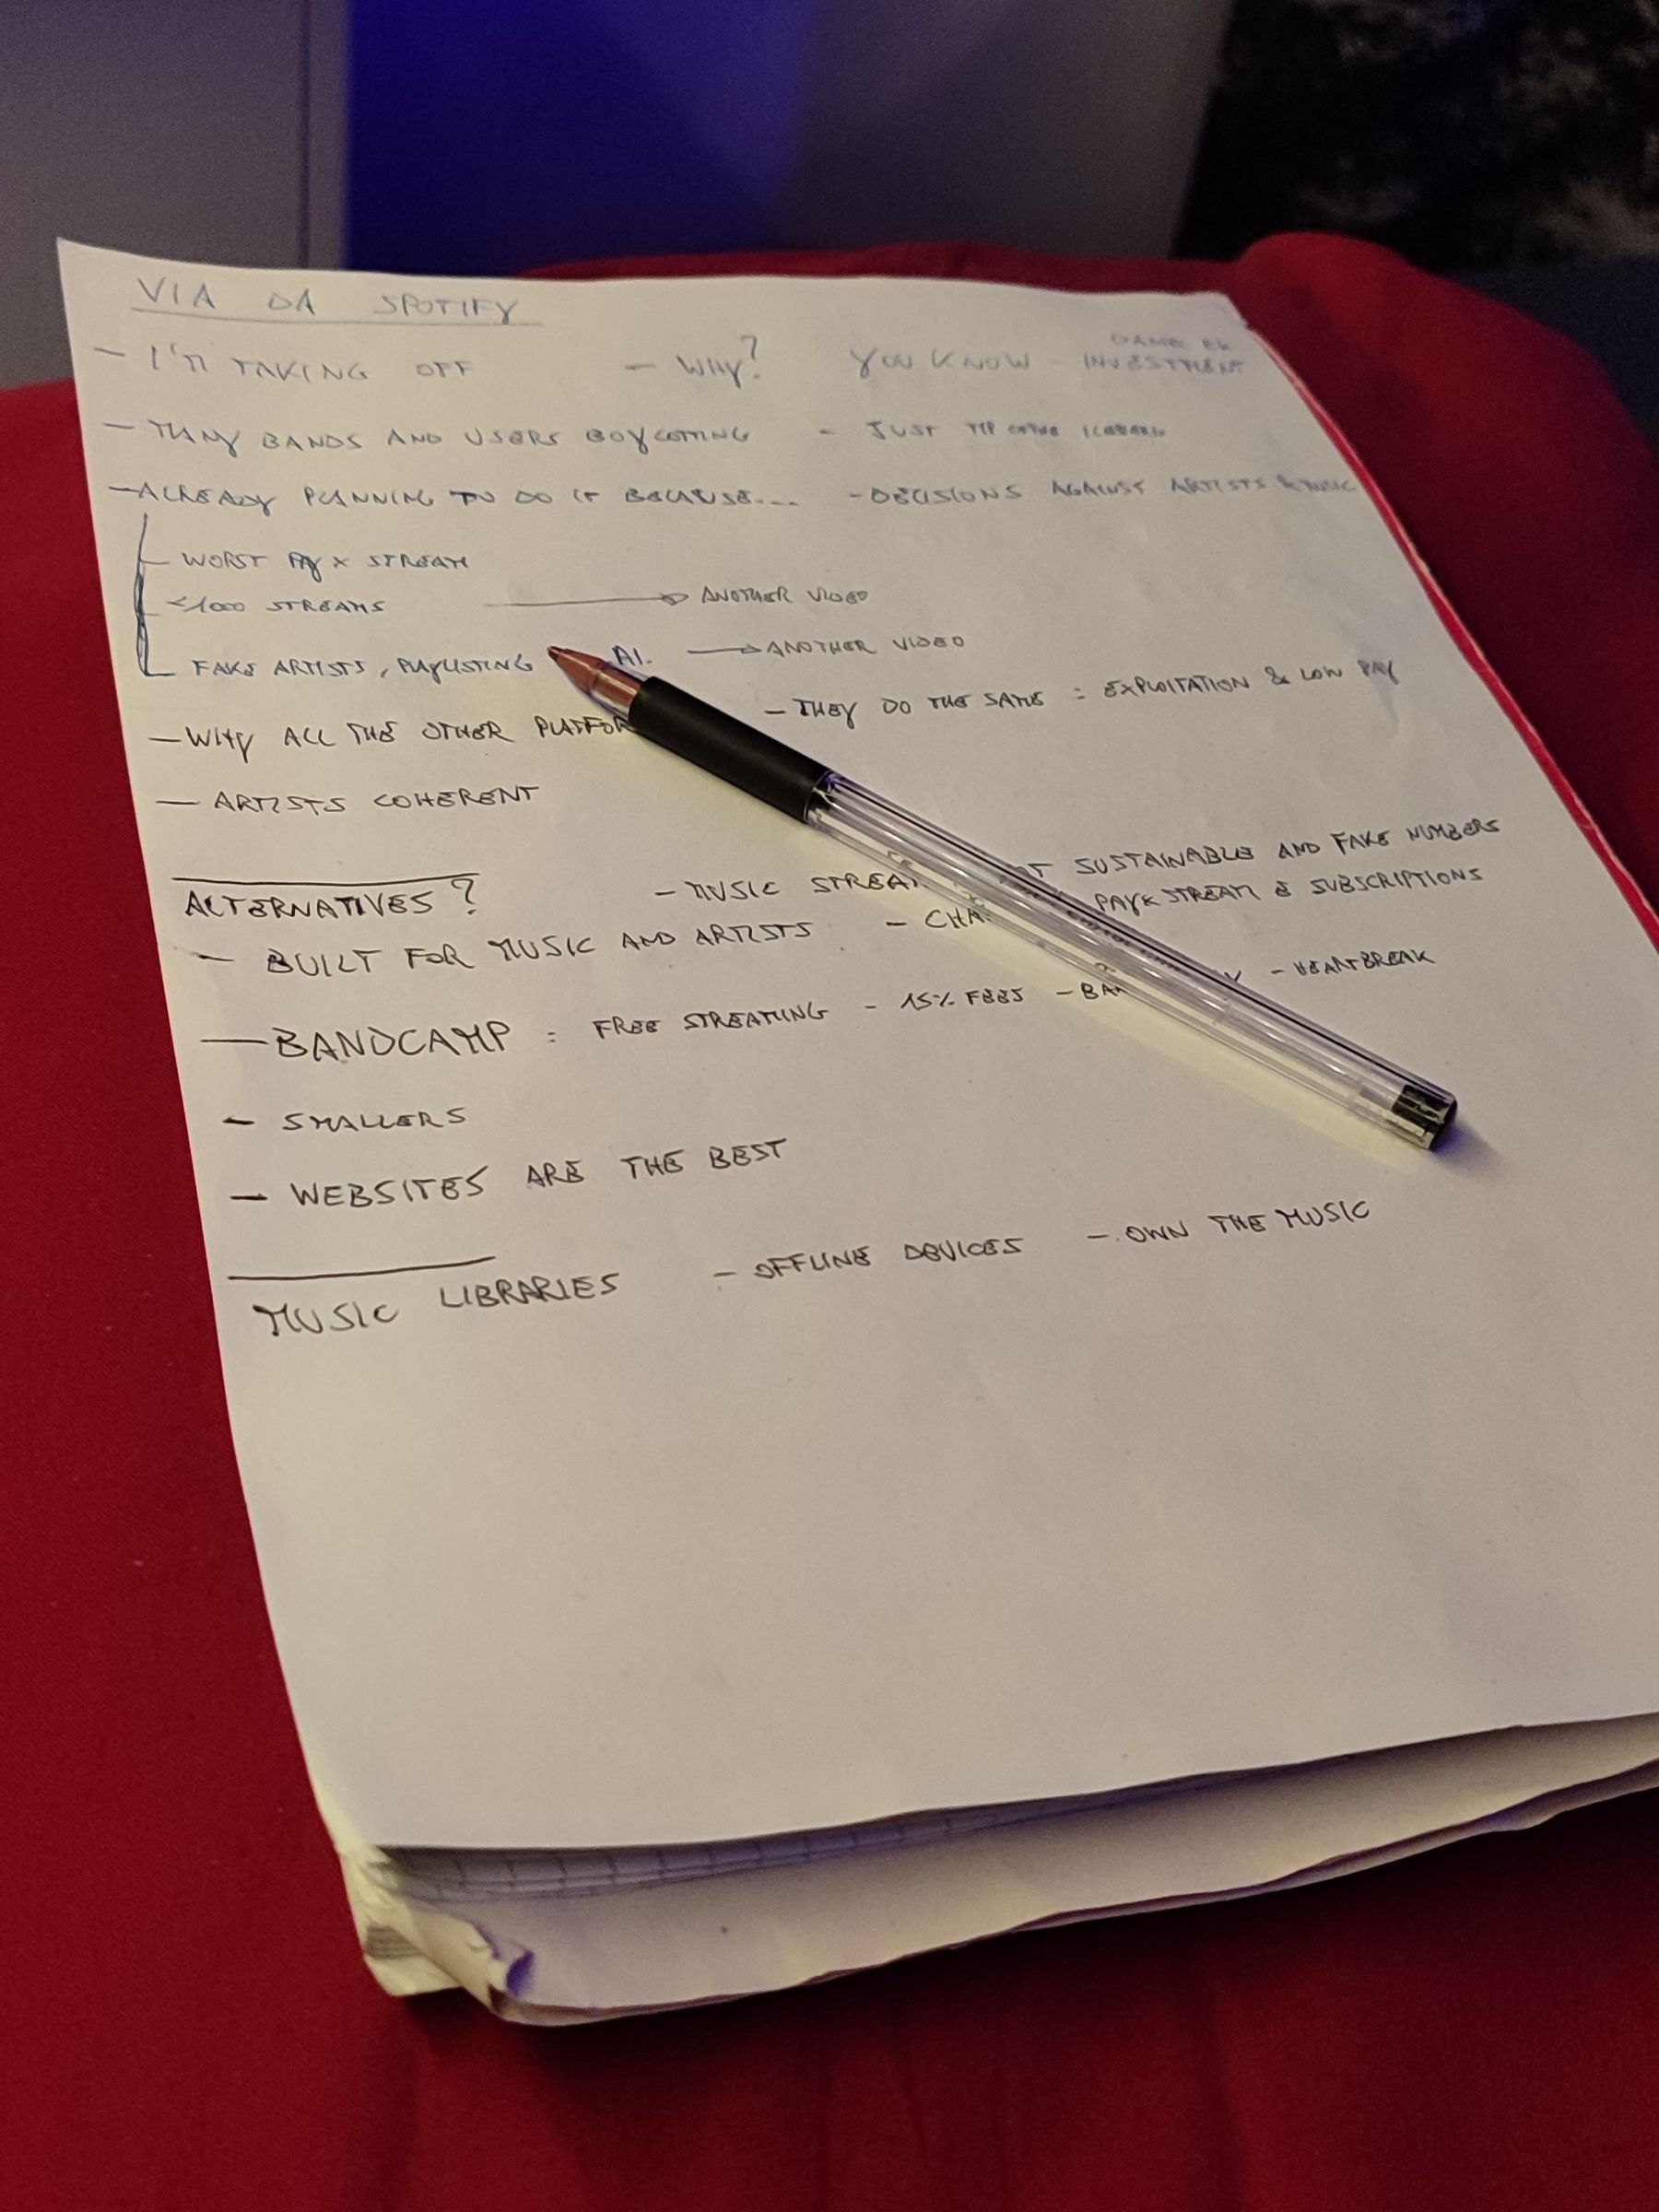 VIA DA SPOTIFY
DANIEL EK
- I'M TAKING OFF - WHY? YOU KNOW - INVESTMENT
- MANY BANDS AND USERS BOYCOTTING - JUST TIP OF THE ICEBERG
- ALREADY PLANNING TO DO IT BECAUSE.... - DECISIONS AGAINST ARTISTS & MUSIC
- WORST PAY X STREAM
- <1000 STREAMS → ANOTHER VIDEO
- FAKE ARTISTS, PLAYLISTING AI. → ANOTHER VIDEO
- WHY ALL THE OTHER PLATFOR - THEY DO THE SAME = EXPLOITATION & LOW PAY
- ARTISTS COHERENT
ALTERNATIVES? - MUSIC STREA SUSTAINABLE AND FAKE NUMBERS
- BUILT FOR MUSIC AND ARTISTS - CHA PAY X STREAM & SUBSCRIPTIONS
- BANDCAMP = FREE STREAMING - 15% FEES - BA - HEARTBREAK
- SMALLERS
- WEBSITES ARE THE BEST
MUSIC LIBRARIES - OFFLINE DEVICES - OWN THE MUSIC